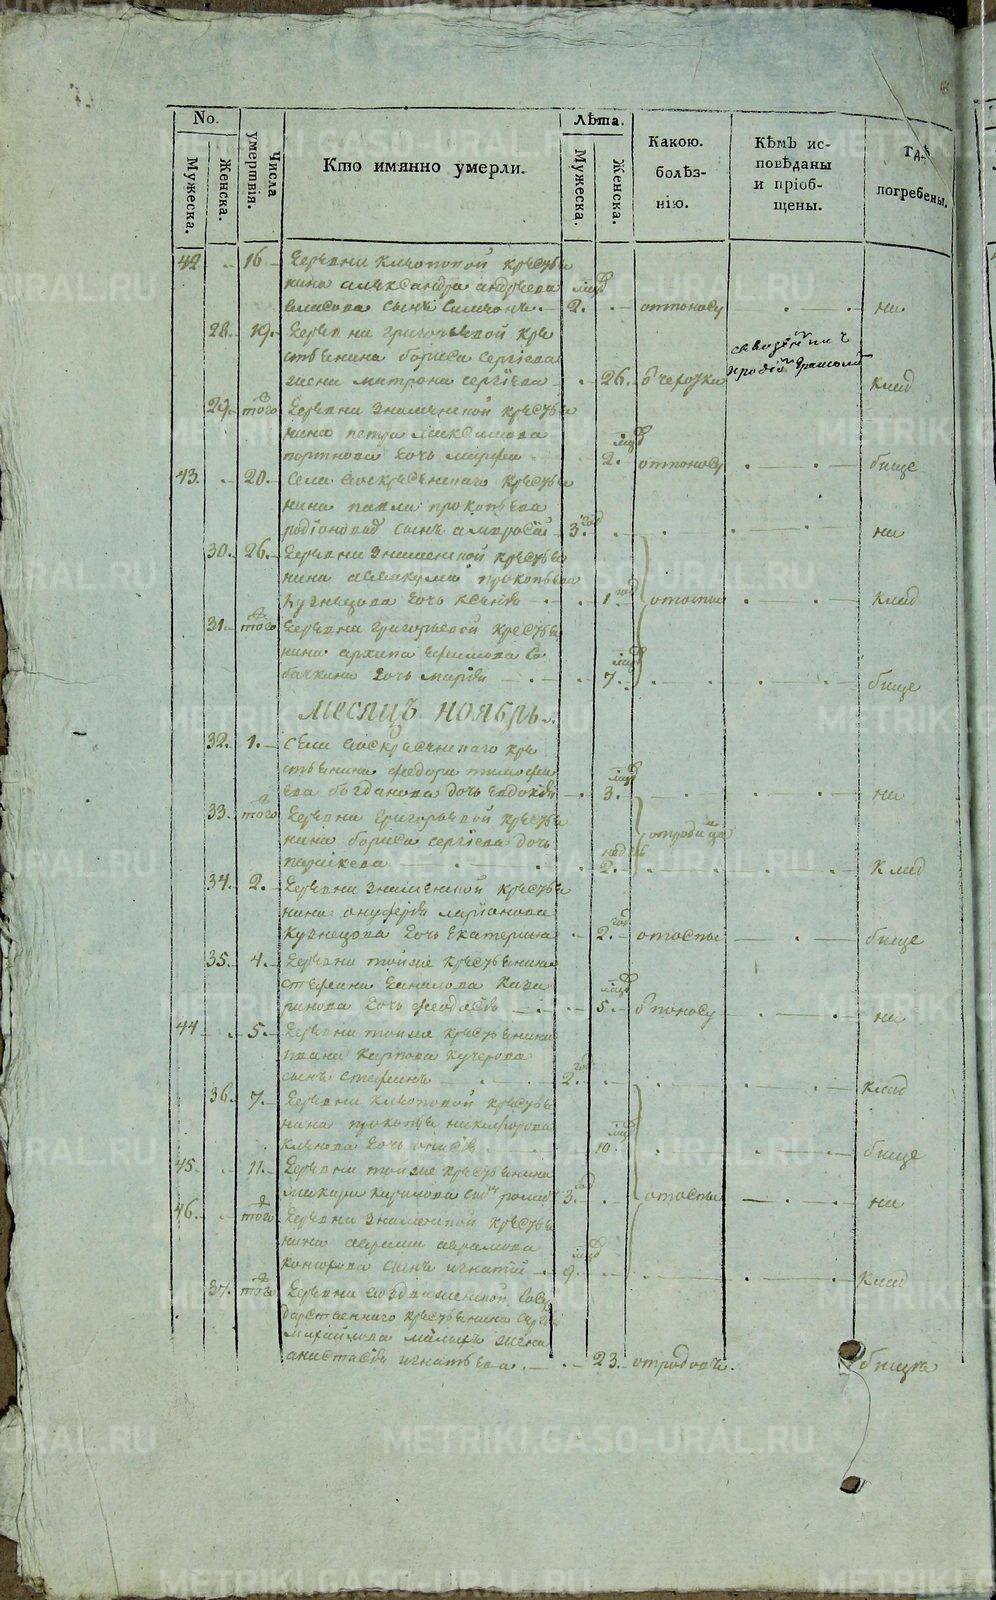 No.
Мужеска.
Женска.
Числа умертвія.
Кто имянно умерли.
Лѣта.
Мужеска.
Женска.
Какою. болѣз-нію.
Кѣмъ ис-повѣданы и пріоб-щены.
Гдѣ погребены.
42 16 деревни клюпотовой крестья
нина александра андреева
власова сынъ симионъ 2. отпоносу на
28. 19. деревни григорьевой кре
стьянина бориса сергіева
жена матрона сергіева 26. клад
29. того деревни знаменской крестья
нина петра максимова
портнова дочь марфа 2. отпоносу бище
43. 20. Села воскресенскаго крестья
нина павла прокопьева
родіонова сынъ амвросій 3. год на
30. 26. деревни знаменской крестья
нина аввакума прокопьева
кузнецова дочь ксенія 1 год отоспы клад
31. того деревни григорьевой крестья
нина архипа ефимова со
бачкина дочь марія 7. бище
месяцъ ноябрь.
32. 1. села воскресенскаго кре
стьянина федора тимофе
ева богданова дочь евдокія 3. на
33. того деревни григорьевой крестья
нина бориса сергіева дочь
параскева недель 2. клад
34. 2. деревни знаменской крестья
нина онуферія ларионова
кузнецова дочь екатерина 2. год отоспы бище
35. 4. деревни тойже крестьянина
стефана данилова
дочь феодосія 5. поносу на
44 5. деревни тойже крестьянина
ивана карпова кучерова
сынъ стефанъ 2. год клад
36. 7. деревни клюпотовой крестья
нина прокопья никифорова
дочь 10. бище
45. 11. деревни тойже крестьянина
макара сынъ роман 3. год отоспы на
46. того деревни знаменской крестья
нина аврама аврамова
сынъ игнатій 9. клад
37. того деревни воздвиженской госу
дарственнаго крестьянина
михайлова жена
анастасія игнатьева 23. отродовъ. бищъ
METRIKI.GASO-URAL.RU